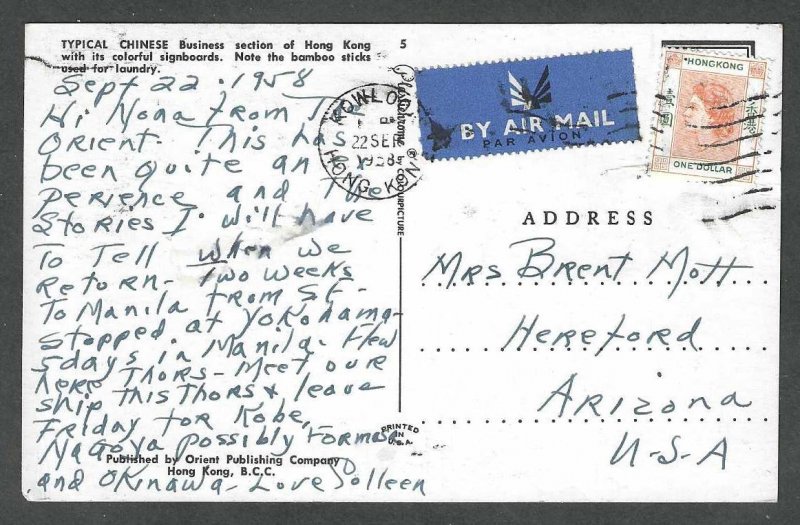 TYPICAL CHINESE Business section of Hong Kong
with its colorful signboards. Note the bamboo sticks
used for laundry.
5
Sept 22. 1958
Hi, Nona from The
Orient. This has
been quite an ex
perience and The
Stories I will have
To Tell when we
Return. Two weeks
To Manila from SF-
Stopped at Yokohama-
5 days in Manila. Flew
here Thors- Meet our
ship this Thors & leave
Friday for Kobe,
Nagoya possibly Formosa
and Okinawa- Love Jolleen
Published by Orient Publishing Company
Hong Kong, B.C.C.
Plastichrome ® COLOURPICTURE
PRINTED
IN
U.S.A.
KOWLOON
22 SEP
1958
HONG KONG
BY AIR MAIL
PAR AVION
HONGKONG
ONE DOLLAR
ADDRESS
Mrs Brent Mott
Hereford
Arizona
U-S-A